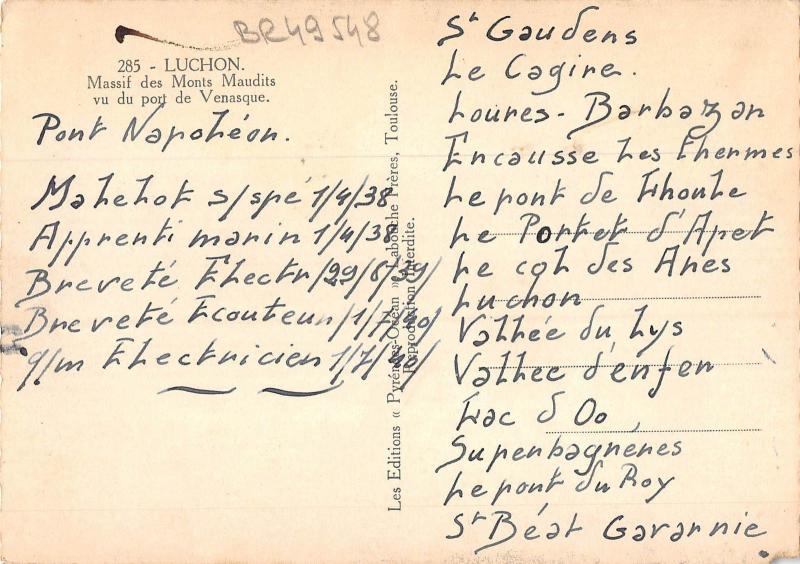 BR49548
285 - LUCHON.
Massif des Monts Maudits
vu du port de Venasque.
Pont Napoléon.
Matelot s/spé 1/4/38
Apprenti marin 1/4/38
Breveté Electr/29/6/39/
Breveté Ecouteur/1/7/40/
q/m Electricien 1/7/
Les Editions « Pyrénées-Océan » Labouche Frères, Toulouse.
Reproduction interdite.
St Gaudens
Le Cagire.
Loures-Barbazan
Encausse Les Thermes
Le pont de Lhoule
Le Portet d'Apet
Le col des Ares
Luchon
Vallée du Lys
Vallée d'enfer
Lac d Oo
Superbagnères
Le pont du Roy
St Béat Gavarnie